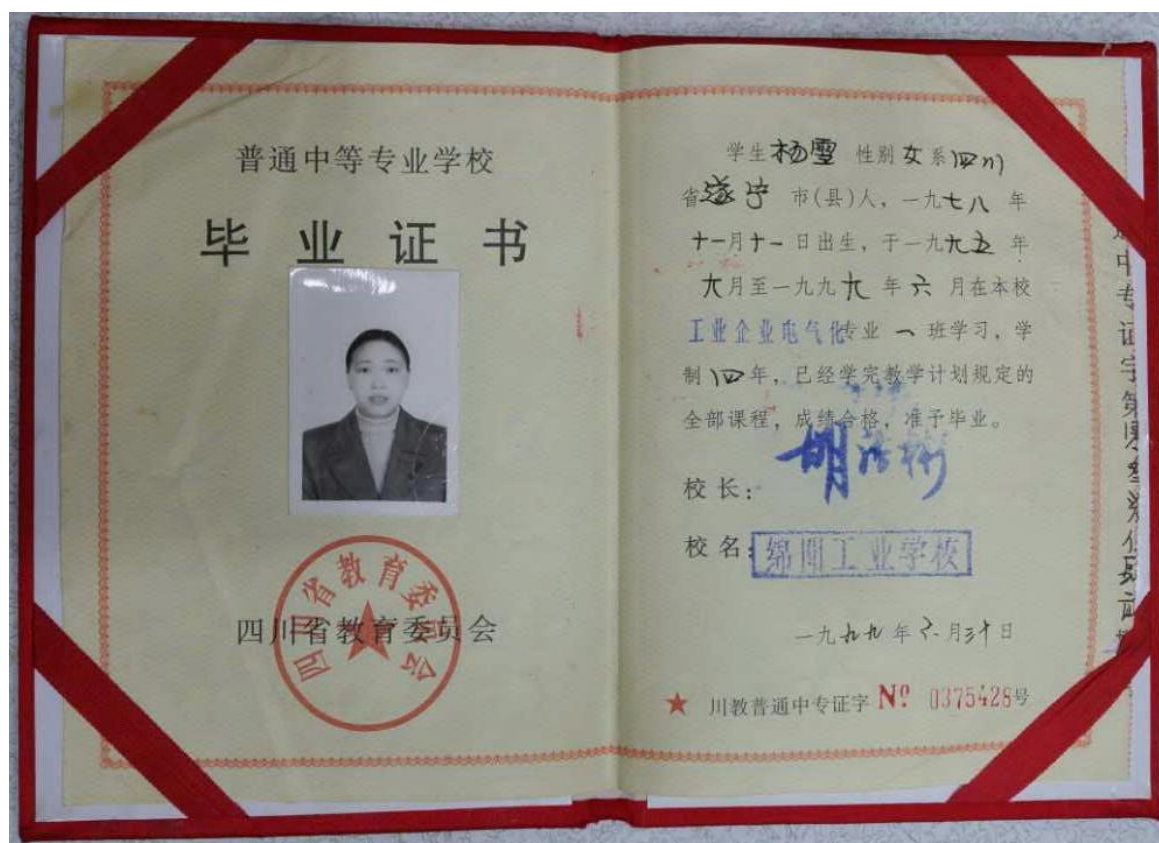 普通中等专业学校
毕业证书
四川省教育委员会
四川省教育委员会
学生杨雪 性别女系四川
省遂宁 市(县)人，一九七八 年
十一月十一日出生，于一九九五 年
九月至一九九九 年六 月在本校
工业企业电气化专业 一 班学习，学
制四年，已经学完教学计划规定的
全部课程，成绩合格，准予毕业。
校长：
校名：绵阳工业学校
一九九九年六月三十日
★ 川教普通中专证字 No 0375428号
中专证字第